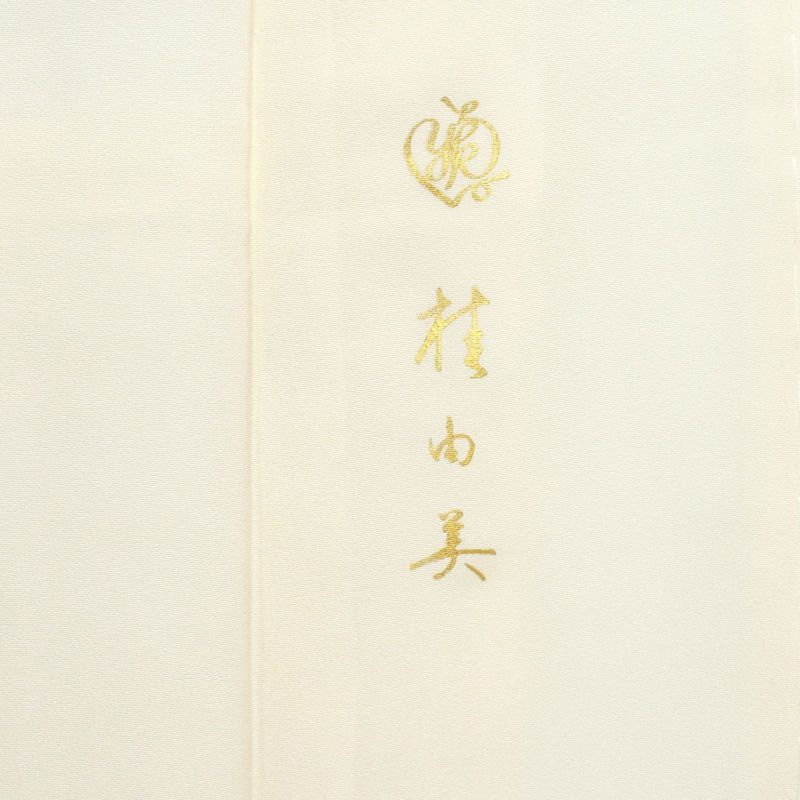 桂由美